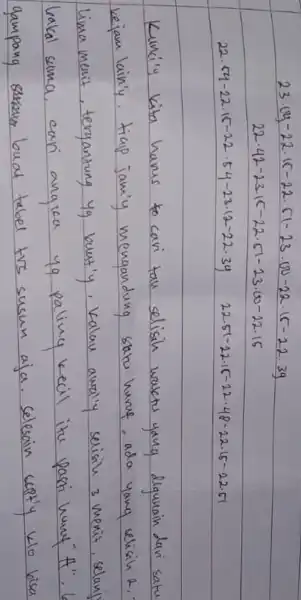 23.09-22.15-22.51-23.00-22.15-22.39
22.42-23.15-22.51-23.00-22.15
22.54-22.15-22.54-23.12-22.39 22.51-22.15-22.48-22.15-22.51
Kunci'y kita harus to cari tau selisih waktu yang digunain dari satu
kejam lain'y. tiap jam'y mengandung satu huruf, ada yang selisih 2,
lima menit, tergantung yg buat'y, kalau awal'y selisih 3 menit, selanj
bakal sama, cari angka yg paling kecil itu pasti huruf "A",
gampang buat tabel trs susun aja, selesain cept'y klo bisa